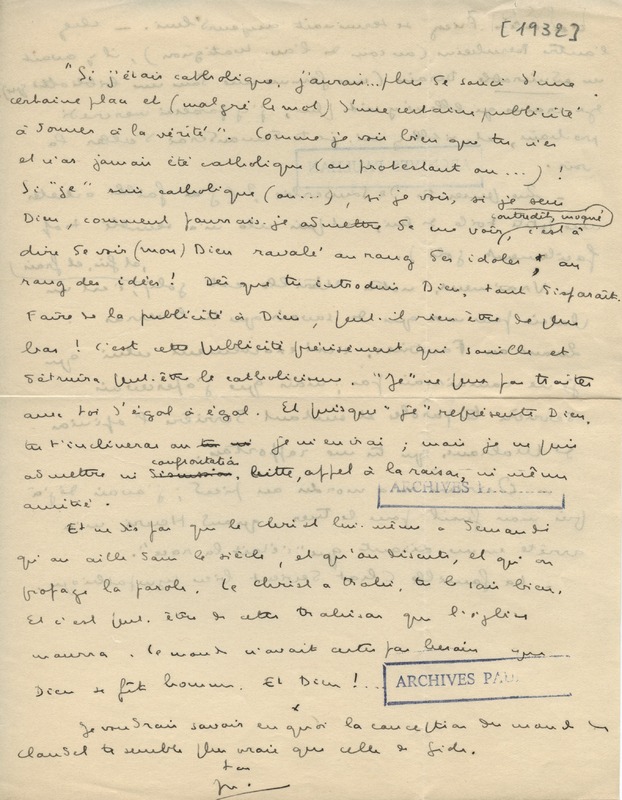 [1932]
"Si j'étais catholique, j'aurais... plus de souci d'une
certaine place et (malgré le mot) d'une certaine publicité
à donner à la vérité". Comme je vois bien que tu n'es
et n'as jamais été catholique (ou protestant ou...) !
Si "je" suis catholique (ou...), si je vois, si je sens
Dieu, comment pourrais-je admettre de me voir contredit, moqué, c'est à
dire de voir (mon) Dieu ravalé au rang des idoles, au
rang des idées ! Dès que tu introduis Dieu, tout disparaît.
Faire de la publicité à Dieu, peut-il rien être de plus
bas ! C'est cette publicité précisément qui souille et
détruira peut-être le catholicisme. "Je" ne peux pas traiter
avec toi d'égal à égal. Et puisque "je" représente Dieu,
tu t'inclineras ou je m'en irai ; mais je ne puis
admettre ni confrontation, lutte, appel à la raison, ni même
amitié.
Et ne dis pas que le Christ lui-même a demandé
qu'on aille dans le siècle, et qu'on discute, et qu'on
propage la parole. Le Christ a trahi, tu le sais bien.
Et c'est peut-être de cette trahison que l'église
mourra. Le monde n'avait certes pas besoin que
Dieu se fît homme. Et Dieu !...
ARCHIVES PAU
ARCHIVES
Je voudrais savoir en quoi la conception du monde de
Claudel te semble plus vraie que celle de Gide.
ton